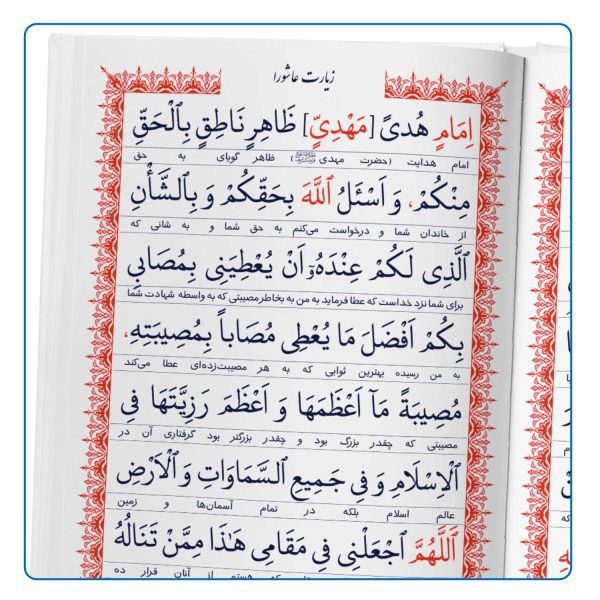 زیارت عاشورا
اِمَامِ هُدیً [مَهْدِیٍّ] ظَاهِرٍ نَاطِقٍ بِالْحَقِّ
امام هدایت (حضرت مهدی) ظاهر گویای به حق
مِنْکُمْ، وَ اَسْئَلُ اللَّهَ بِحَقِّکُمْ وَ بِالشَّأْنِ
از خاندان شما و درخواست می‌کنم به حق شما و به شانی که
الَّذِی لَکُمْ عِنْدَهُ، اَنْ یُعْطِیَنِی بِمُصَابِی
برای شما نزد خداست که عطا فرماید به من به بخاطر مصیبتی که به واسطه شهادت شما
بِکُمْ اَفْضَلَ مَا یُعْطِی مُصَاباً بِمُصِیبَتِهِ،
به من رسیده بهترین ثوابی که به هر مصیبت‌زده‌ای عطا می‌کند
مُصِیبَةً مَآ اَعْظَمَهَا وَ اَعْظَمَ رَزِیَّتَهَا فِی
مصیبتی که چقدر بزرگ بود و چقدر بزرگتر بود گرفتاری آن در
الْاِسْلَامِ وَ فِی جَمِیعِ السَّمَاوَاتِ وَ الْاَرْضِ
عالم اسلام بلکه در تمام آسمان‌ها و زمین
اَللَّهُمَّ اجْعَلْنِی فِی مَقَامِی هَذَا مِمَّنْ تَنَالُهُ
که هستم از آنان قرار ده